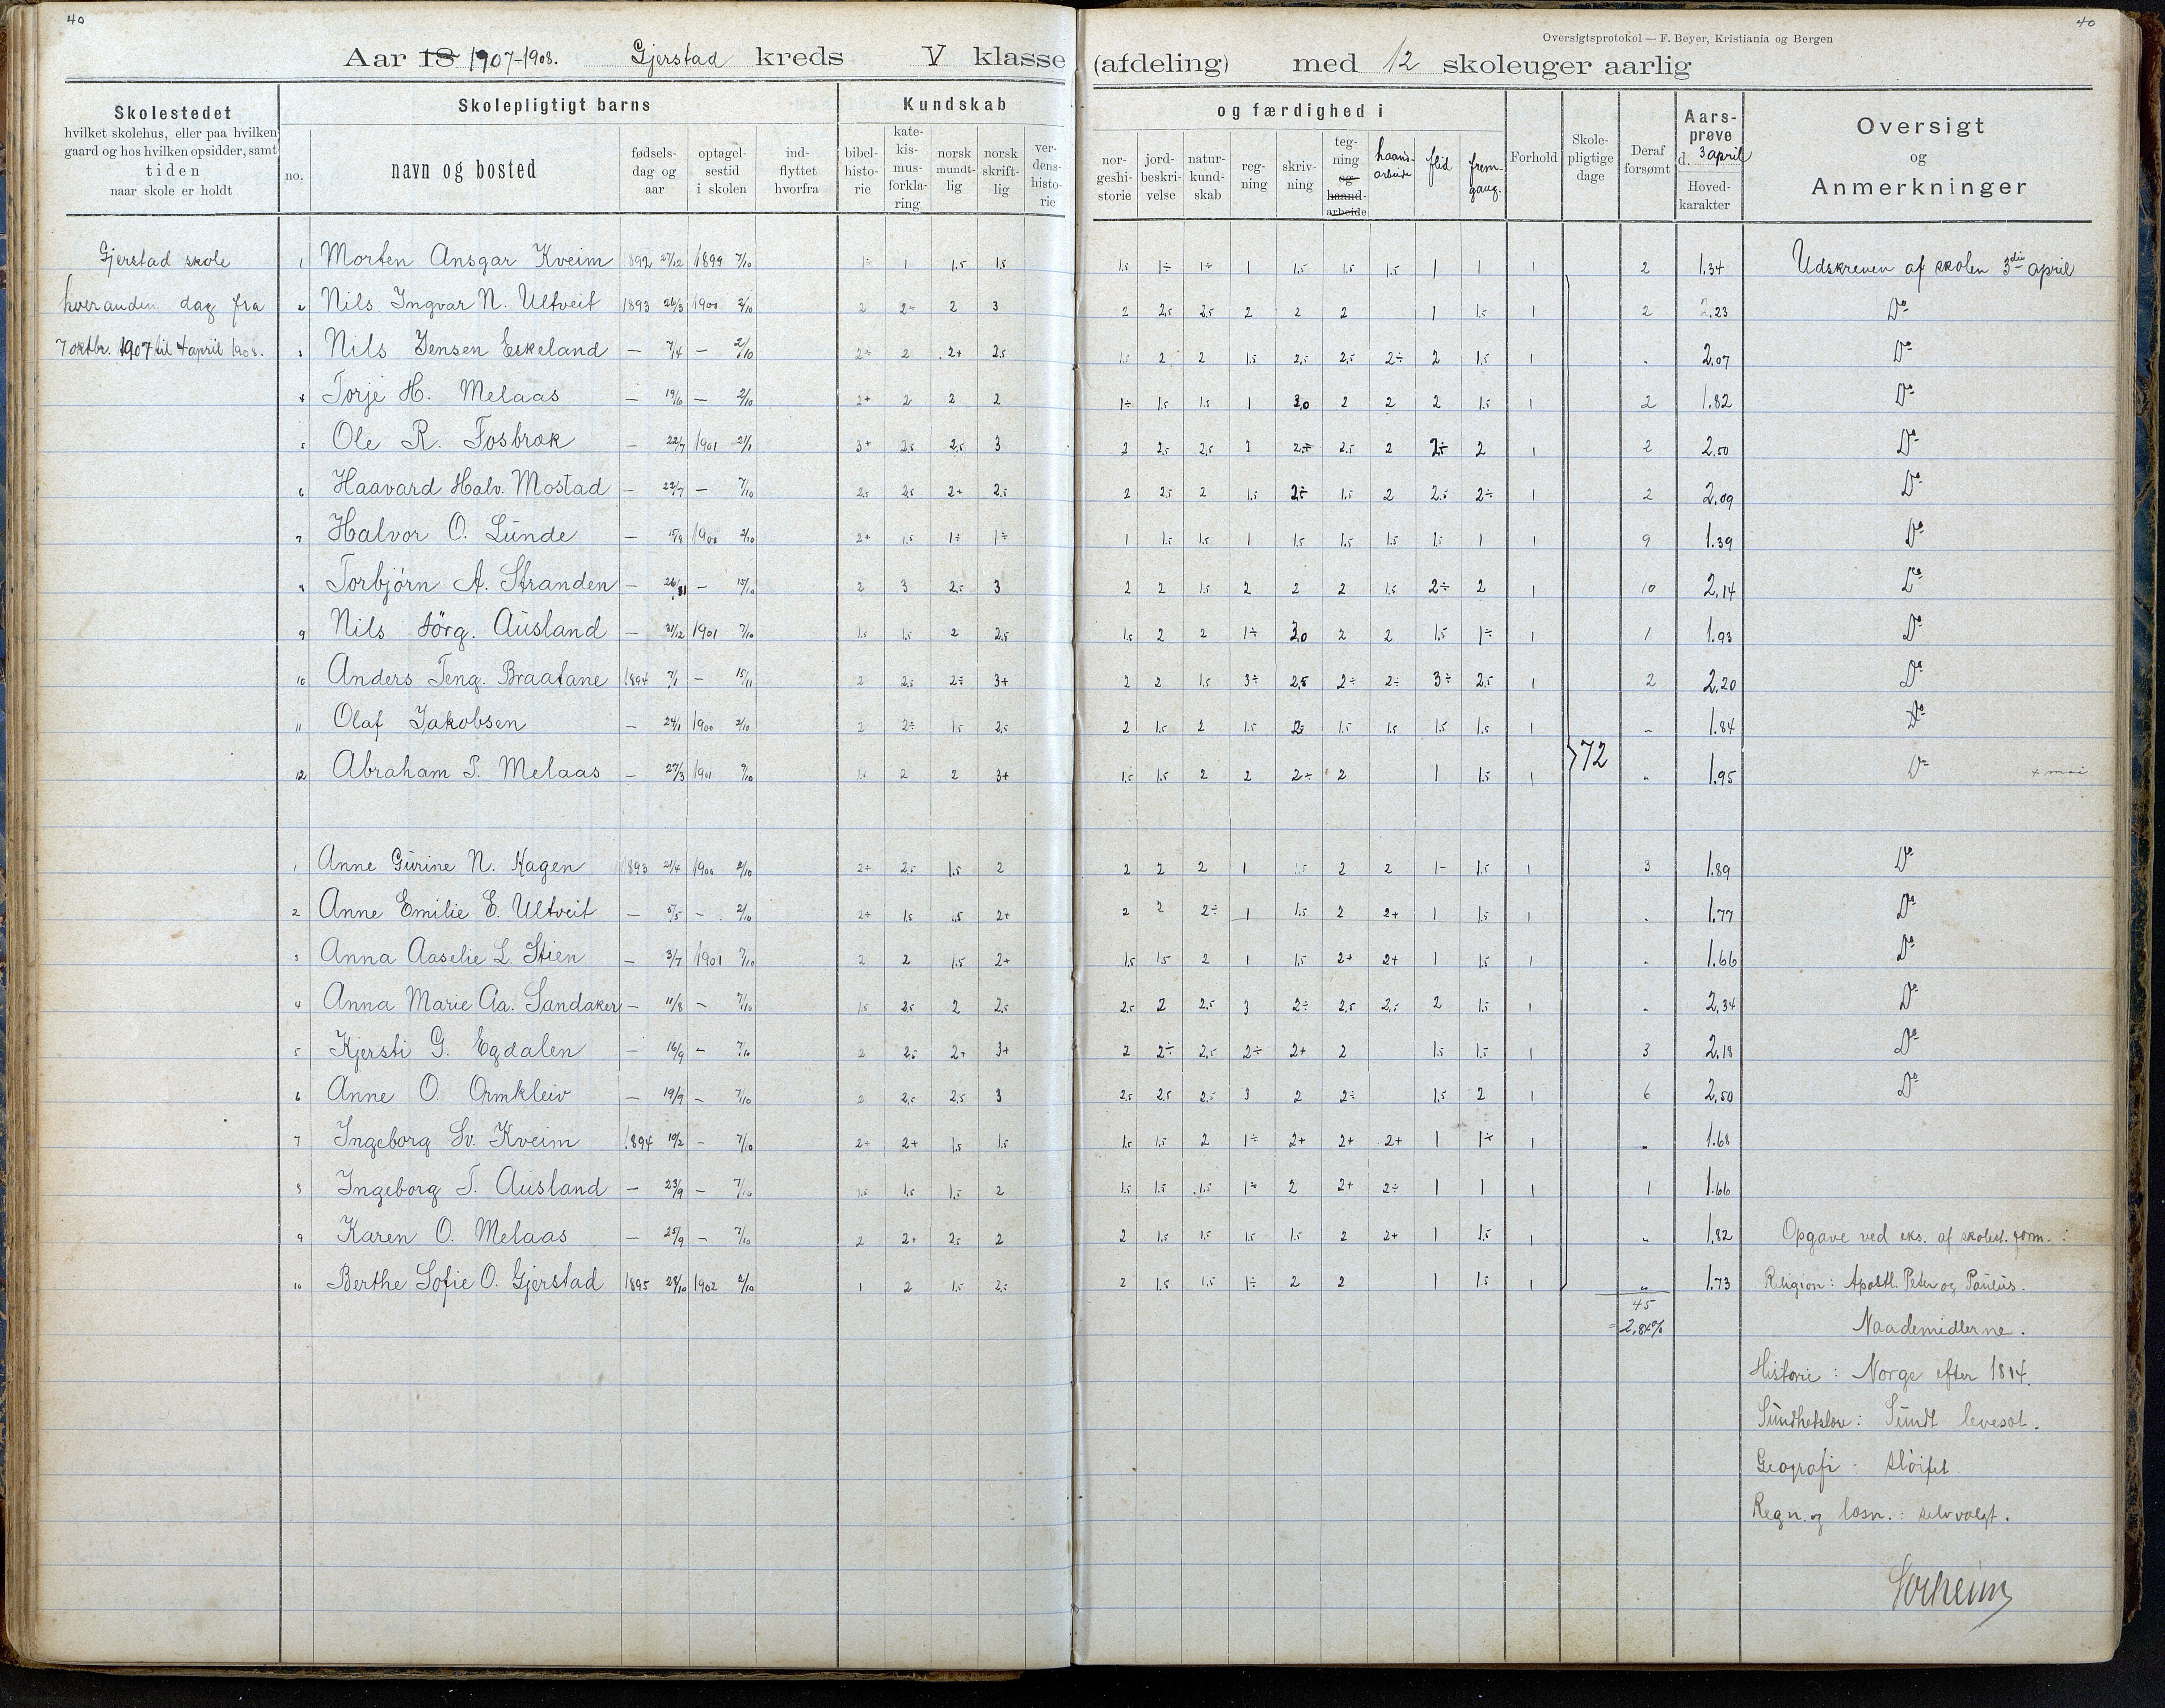 40
40
Oversigtsprotokol — F. Beyer, Kristiania og Bergen
Aar 18 1907-1908. Gjerstad kreds V klasse (afdeling) med 12 skoleuger aarlig
Skolestedet
hvilket skolehus, eller paa hvilken
gaard og hos hvilken opsidder, samt
tiden
naar skole er holdt
Skolepligtigt barns
no.
navn og bosted
fødsels-
dag og
aar
optagel-
sestid
i skolen
ind-
flyttet
hvorfra
Kundskab og færdighed i
bibel-
histo-
rie
kate-
kis-
mus-
forkla-
ring
norsk
mundt-
lig
norsk
skrift-
lig
ver-
dens-
histo-
rie
nor-
geshi-
storie
jord-
beskri-
velse
natur-
kund-
skab
reg-
ning
skriv-
ning
teg-
ning
og
haand-
arbeide
haand-
arbeide
flid
frem-
gang.
Forhold
Skole-
pligtige
dage
Deraf
forsømt
Aars-
prøve
d. 3 april
Hoved-
karakter
Oversigt
og
Anmerkninger
Gjerstad skole
hveranden dag fra
7 oktbr. 1907 til 4 april 1908.
1 Morten Ansgar Kveim 1892 27/12 1899 7/10 1÷ 1 1.5 1.5 1.5 1÷ 1÷ 1 1.5 1.5 1.5 1 1 1 2 1.34 Udskreven af skolen 3die april
2 Nils Ingvar N. Ultveit 1893 26/3 1900 2/10 2 2÷ 2 3 2 2.5 2.5 2 2 2 1 1.5 1 2 2.23 Do
3 Nils Jensen Eskeland — 7/4 — 2/10 2÷ 2 2+ 2.5 1.5 2 2 1.5 2.5 2.5 2÷ 2 1.5 1 „ 2.07 Do
4 Torje H. Melaas — 19/6 — 2/10 2+ 2 2 2 1÷ 1.5 1.5 1 3.0 2 2 2 1.5 1 2 1.82 Do
5 Ole R. Fosbræk — 22/7 1901 21/1 3+ 2.5 2.5 3 2 2.5 2.5 3 2÷ 2.5 2 2÷ 2 1 2 2.50 Do
6 Haavard Halv. Mostad — 22/7 — 7/10 2.5 2.5 2+ 2.5 2 2.5 2 1.5 2÷ 1.5 2 2.5 2÷ 1 2 2.09 Do
7 Halvor O. Lunde — 15/8 1900 2/10 2+ 1.5 1÷ 1÷ 1 1.5 1.5 1 1.5 1.5 1.5 1.5 1 1 9 1.39 Do
8 Torbjörn A. Stranden — 26/11 — 15/10 2 3 2.5 3 2 2 1.5 2 2 2 1.5 2÷ 2 1 10 2.14 Do
9 Nils Jörg. Ausland — 31/12 1901 7/10 1.5 1.5 2 2.5 1.5 2 2 1÷ 3.0 2 2 1.5 1÷ 1 1 1.93 Do
10 Anders Teng. Braatane 1894 7/1 — 15/11 2 2.5 2÷ 3+ 2 2 1.5 3÷ 2.5 2÷ 2÷ 3÷ 2.5 1 2 2.20 Do
11 Olaf Jakobsen — 24/1 1900 2/10 2 2÷ 1.5 2.5 2 1.5 2 1.5 2÷ 1.5 1.5 1.5 1.5 1 „ 1.84 Do
12 Abraham T. Melaas — 27/3 1901 7/10 1.5 2 2 3+ 1.5 1.5 2 2 2÷ 2 1 1.5 1 72 „ 1.95 Do
1 Anne Gurine N. Hagen 1893 21/4 1900 2/10 2+ 2.5 1.5 2 2 2 2 1 1.5 2 2 1- 1.5 1 3 1.89 Do
2 Anne Emilie E. Ultveit — 5/5 — 2/10 2÷ 1.5 1.5 2+ 2 2 2÷ 1 1.5 2 2+ 1 1.5 1 „ 1.77 Do
3 Anna Aaselie L. Stien — 3/7 1901 7/10 2 2 1.5 2+ 1.5 1.5 2 1 1.5 2+ 2+ 1 1.5 1 „ 1.66 Do
4 Anna Marie Aa. Sandaker — 11/8 — 7/10 1.5 2.5 2 2.5 2.5 2 2.5 3 2÷ 2.5 2.5 2 1.5 1 „ 2.34 Do
5 Kjersti G. Egdalen — 16/9 — 7/10 2 2.5 2+ 3+ 2 2÷ 2.5 2÷ 2+ 2 1.5 1.5 1 3 2.18 Do
6 Anne O. Ormkleiv — 19/9 — 7/10 2 2.5 2.5 3 2.5 2.5 2.5 3 2 2÷ 1.5 2 1 6 2.50 Do
7 Ingeborg Sv. Kveim 1894 10/2 — 7/10 2+ 2+ 1.5 1.5 1.5 1.5 2 1÷ 2+ 2+ 2+ 1 1÷ 1 „ 1.68
8 Ingeborg T. Ausland — 23/9 — 7/10 1.5 1.5 1.5 2 1.5 1.5 1.5 1÷ 2 2+ 2÷ 1 1 1 1 1.66
9 Karen O. Melaas — 25/9 — 7/10 2 2+ 2.5 2 2 1.5 1.5 1.5 1.5 2 2+ 1 1.5 1 „ 1.82 Opgave ved eks. af skolest. form. :
10 Berthe Sofie O. Gjerstad 1895 28/10 1902 2/10 1 2 1.5 2.5 2 1.5 1.5 1÷ 2 2 1 1.5 1 „ 1.73 Religion: Apostl. Peter og Paulus.
45
= 2,84% Naademidlerne.
Historie: Norge efter 1814.
Sundhetslære: Sundt levesæt.
Geografi: sløifet
Regn. og læsn.: selvvalgt.